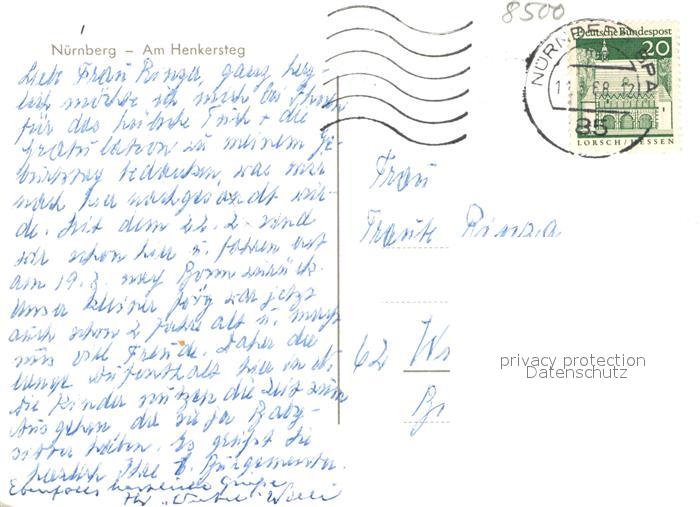 8500
Nürnberg – Am Henkersteg
Deutsche Bundespost
20
NÜRNBERG
85
LORSCH/HESSEN
Liebe Frau Rinza, ganz herz-
lich möchte ich mich bei Ihnen
für das hübsche Tuch + die
Gratulation zu meinem Ge-
burtstag bedanken, was mir
nach hier nachgesandt wur-
de. Seit dem 22. 2. sind
wir schon hier u. fahren erst
am 19. 3. nach Bonn zurück.
Unser kleiner Jörg war jetzt
auch schon 2 Jahre alt u. macht
uns viel Freude. Daher die
lange Aufenthalt hier in
die Kinder nützen die Zeit zum
Ausgehen da sie ja Baby-
sitter haben. Es grüßt Sie
herzlich Ihre E. Bürgemeister.
Ebenfalls herzliche Grüße
Ihr "Willi
Frau
Traute Rinza
62 Wi
privacy protection
Datenschutz